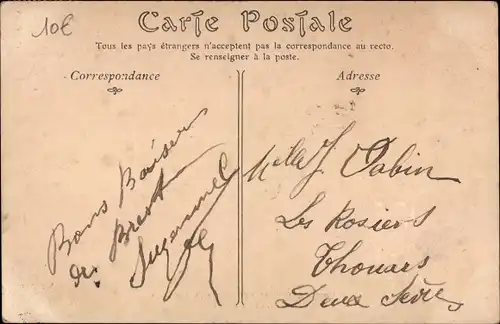 10€
Carte Postale
Tous les pays étrangers n'acceptent pas la correspondance au recto.
Se renseigner à la poste.
Correspondance
Adresse
Bons Baisers
de Brest
Melle J. Babin
Les Rosiers
Thouars
Deux Sèvres